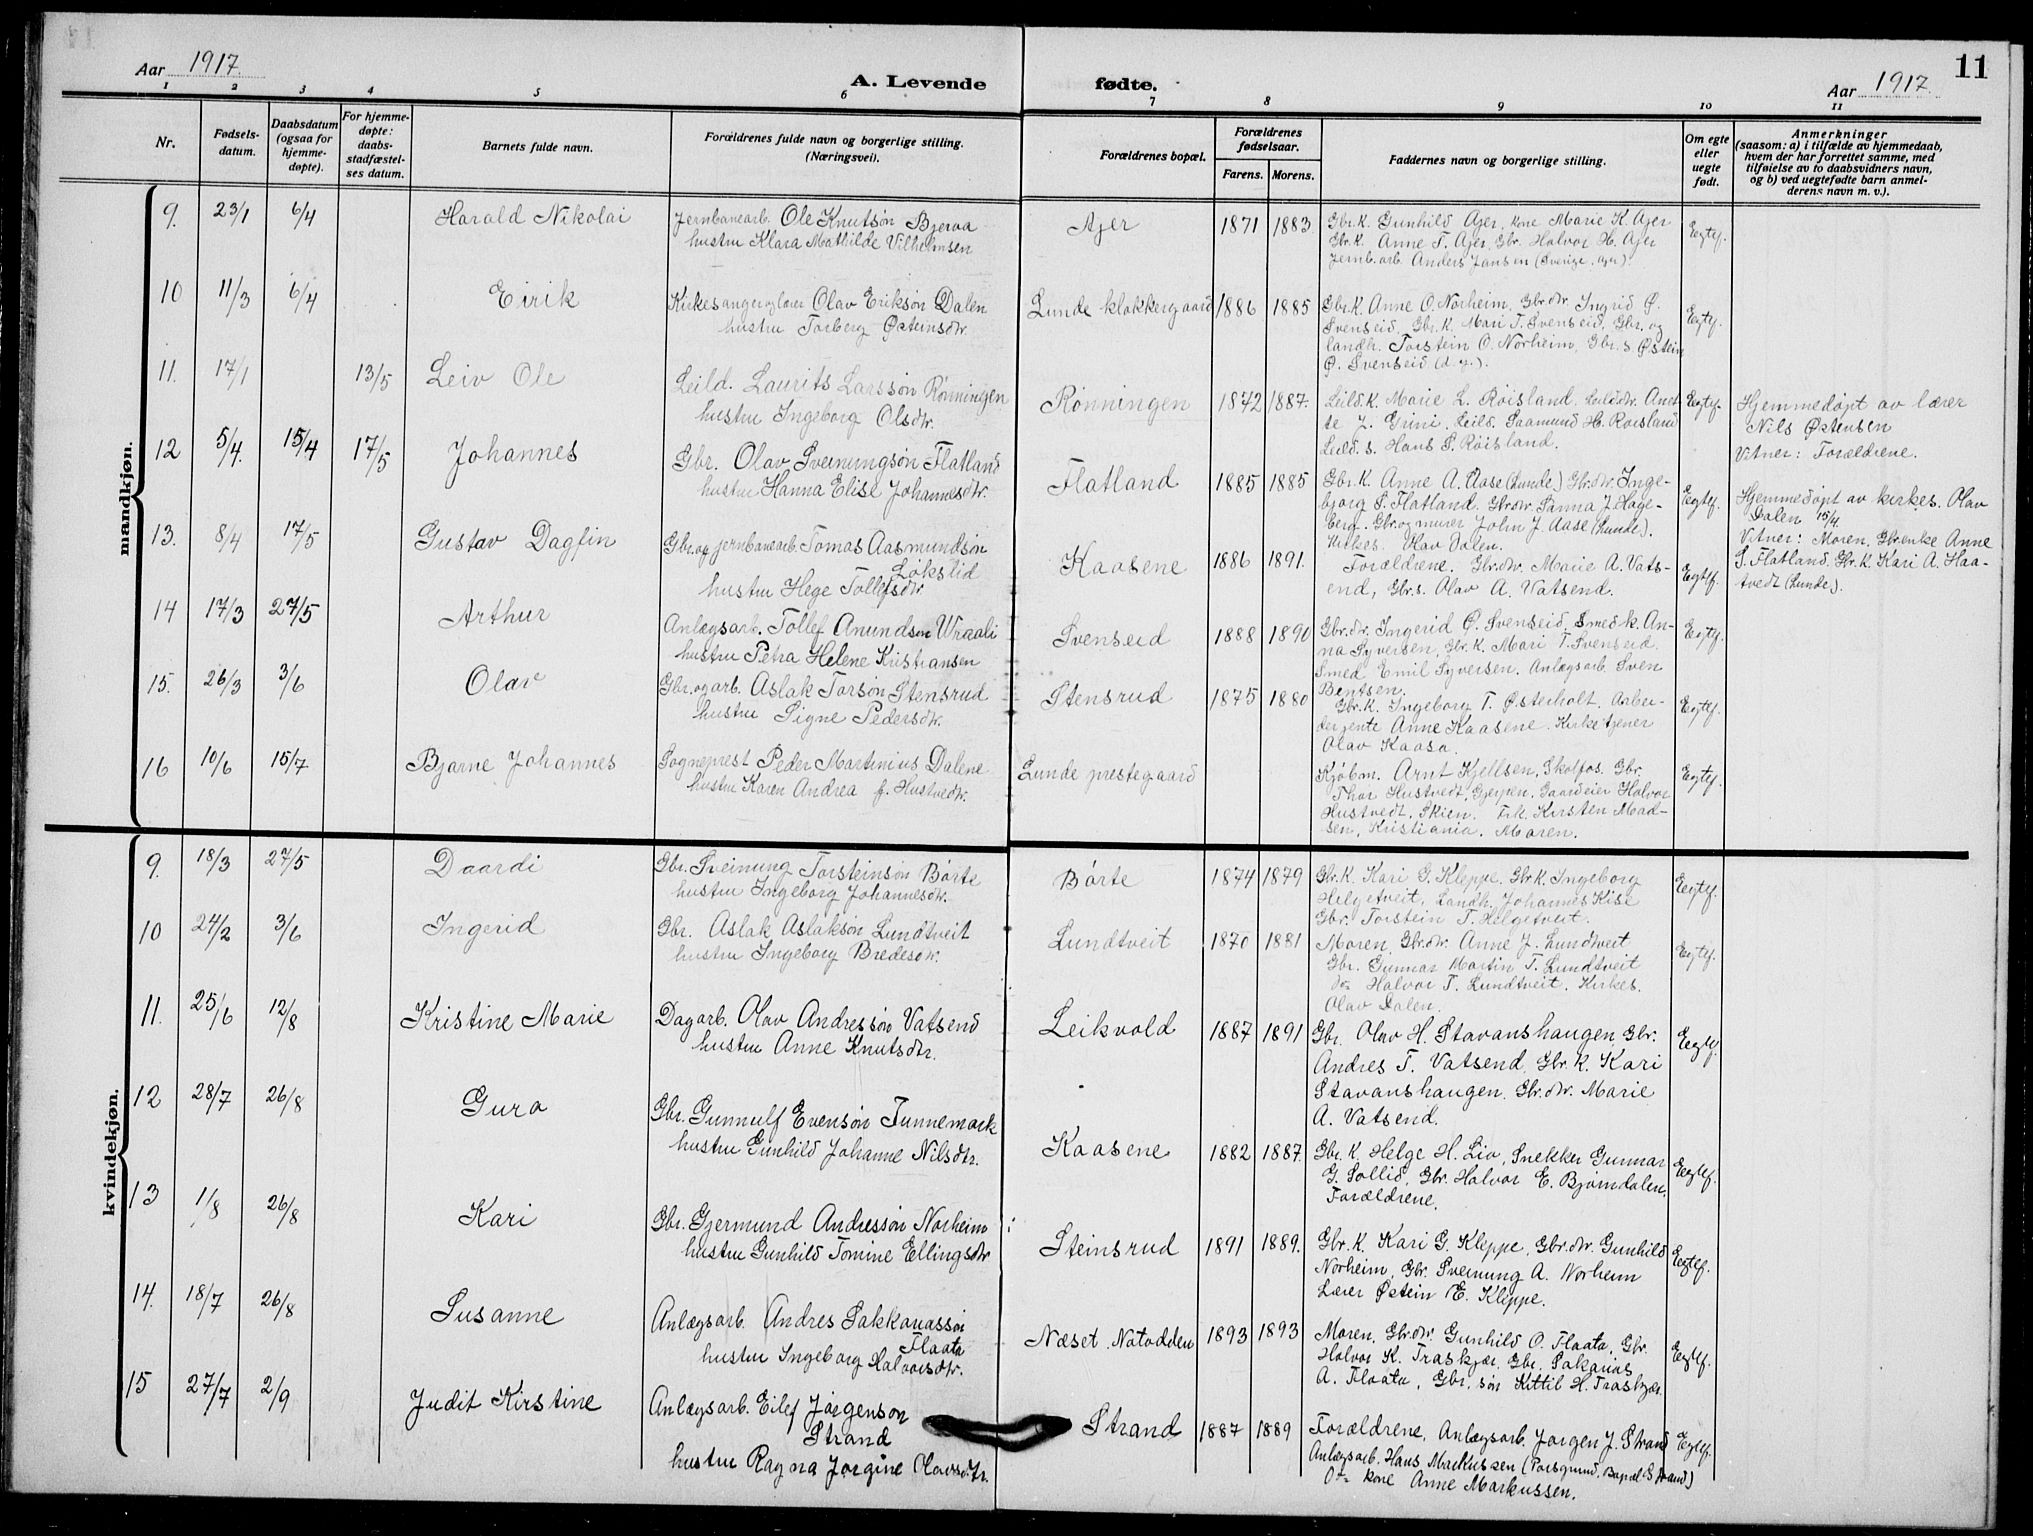 Aar 1917.
A. Levende
fødte.
Aar 1917.
11
1 2 3 4 5 6 7 8 9 10 11
Nr.
Fødsels-
datum.
Daabsdatum
(ogsaa for
hjemme-
døpte).
For hjemme-
døpte:
daabs-
stadfæstel-
ses datum.
Barnets fulde navn.
Forældrenes fulde navn og borgerlige stilling.
(Næringsvei).
Forældrenes bopæl.
Forældrenes
fødselsaar.
Farens. Morens.
Faddernes navn og borgerlige stilling.
Om egte
eller
uegte
født.
Anmerkninger
(saasom: a) i tilfælde av hjemmedaab,
hvem der har forrettet samme, med
tilføielse av to daabsvidners navn,
og b) ved uegtefødte barn anmel-
derens navn m. v.).
mandkjøn.
9. 23/1 6/4 Harald Nikolai Jernbanearb. Ole Knutsøn Bjerva
hustru Klara Mathilde Vilhelmsen
Ajer 1871 1883 Gbr.k. Gunhild Ajer, kone Marie K. Ajer
Gbr.k. Anne T. Ajer, Gbr. Halvor H. Ajer
Jernb.arb. Anders Jansen (Sverige, Ajer).
Egtef.
10 11/3 6/4 Eirik Kirkesanger og lærer Olav Eriksøn Dalen
hustru Torberg Østeinsdtr.
Lunde klokkergaard 1886 1885 Gbr.k. Anne O. Norheim, Gbr.dtr. Ingrid Ø.
Svenseid, Gbr. k. Mari T. Svenseid, Gbr. og
landh. Torstein O. Norheim, Gbr. s. Østein
Ø. Svenseid (d. y.).
Egtef.
11. 17/1 13/5 Leiv Ole Leild. Laurits Larssøn Rønningen
hustru Ingeborg Olsdtr.
Rønningen 1872 1887. Leild.k. Marie L. Røisland, Leild.dtr. Anet-
te J. Grini, Leild. Saamund H. Røisland
Leild. s. Hans S. Røisland.
Egtef.
Hjemmedøpt av lærer
Nils Østensen
Vitner: Forældrene.
12 5/4. 15/4 17/5 Johannes Gbr. Olav Sveinungsøn Flatland
hustru Hanna Elise Johannesdtr.
Flatland 1885 1885 Gbr.k. Anne A. Aase (Lunde) Gbr.dtr. Inge-
bjorg S. Flatland. Gbr.dtr. Sanna J. Hage-
berg. Gbr. og murer John J. Aase (Lunde).
Kirkes. Olav Dalen.
Egtef.
Hjemmedøpt av kirkes. Olav
Dalen 15/4.
Vitner: Moren, Gbr.enke Anne
S. Flatland, Gbr.k. Kari A. Haa-
tvedt (Lunde).
13. 8/4 17/5 Gustav Dagfin Gbr. og jernbanearb. Tomas Aasmundsøn
Løkslid
hustru Hege Tollefsdtr.
Kaasene 1886 1891. Forældrene. Gbr.dtr. Marie A. Vats-
end, Gbr.s. Olav A. Vatsend.
Egtef.
14 17/3 27/5 Arthur Anlægsarb. Tollef Anundsen Wraali
hustru Petra Helene Kristiansen
Svenseid 1888 1890 Gbr.dtr. Ingerid Ø. Svenseid, Smedk. An-
na Syversen, Gbr.k. Mari T. Svenseid.
Smed Emil Syversen. Anlægsarb. Sven
Bentsen.
Egtef.
15. 26/3 3/6 Olav Gbr. og arb. Aslak Torsøn Stensrud
hustru Signe Pedersdtr.
Stensrud 1875 1880 Gbr.k. Ingeborg T. Østerholt, Arbei-
derjente Anne Kaasene. Kirketjener
Olav Kaasa.
Egtef.
16 10/6 15/7 Bjarne Johannes Sogneprest Peder Martinius Dalene
hustru Karen Andrea f. Hustvedt.
Lunde prestegaard Kjøbm. Arnt Kjellsen, Skotfos. Gbr.
Thor Hustvedt, Gjerpen. Gaardeier Halvor
Hustvedt, Skien. Frk. Kirsten Mad-
sen, Kristiania. Moren.
Egtef.
kvindekjøn.
9. 18/3 27/5 Daardi Gbr. Sveinung Torsteinsøn Børte
hustru Ingeborg Johannesdtr.
Børte 1874 1879 Gbr.k. Kari G. Kleppe. Gbr.k. Ingeborg
Helgetveit, Landh. Johannes Kise
Gbr. Torstein T. Helgetveit.
Egtef.
10 24/2 3/6 Ingerid Gbr. Aslak Aslaksøn Lundtveit
hustru Ingeborg Bredesdtr.
Lundtveit 1870 1881 Moren, Gbr.dtr. Anne J. Lundtveit
Gbr. Gunnar Martin T. Lundtveit
do Halvor T. Lundtveit. Kirkes.
Olav Dalen.
Egtef.
11. 25/6 12/8 Kristine Marie Dagarb. Olav Andressøn Vatsend
hustru Anne Knutsdtr.
Leikvold 1887 1891 Gbr. Olav H. Stavanshaugen, Gbr.
Andres T. Vatsend, Gbr. k. Kari
Stavanshaugen, Gbr.dtr. Marie
A. Vatsend.
Egtef.
12 28/7 26/8 Guro Gbr. Gunnulf Evensøn Tunnemark
hustru Gunhild Johanne Nilsdtr.
Kaasene 1882 1887. Gbr. k. Helge H. Lio, Snekker Gunnar
G. Sollid, Gbr. Halvor E. Bjørndalen,
Forældrene.
Egtef.
13 1/8 26/8 Kari Gbr. Gjermund Andressøn Norheim
hustru Gunhild Tomine Ellingsdtr
Steinsrud 1891 1889. Gbr. k. Kari G. Kleppe, Gbr.dtr. Gunhild
Norheim, Gbr. Sveinung A. Norheim
Lærer Østein E. Kleppe.
Egtef.
14. 18/7 26/8 Susanne Anlægsarb. Andres Sakkariassøn
Flaata
hustru Ingeborg Halvorsdtr.
Næset, Notodden 1893 1893 Moren, Gbr.dtr. Gunhild O. Flaata, Gbr.
Halvor K. Traskjær, Gbr. Sakarias
A. Flaata, Gbr. søn Kittil H. Traskjær.
Egtef.
15 27/7 2/9 Judit Kirstine Anlægsarb. Eilef Jørgensøn
Strand
hustru Ragna Jørgine Olavsdtr.
Strand 1887 1889 Forældrene, Anlægsarb. Jørgen J. Strand
Anlægsarb. Hans Markussen (Porsgrund, Bopæl: Strand)
Og kone Anne Markussen.
Egtef.